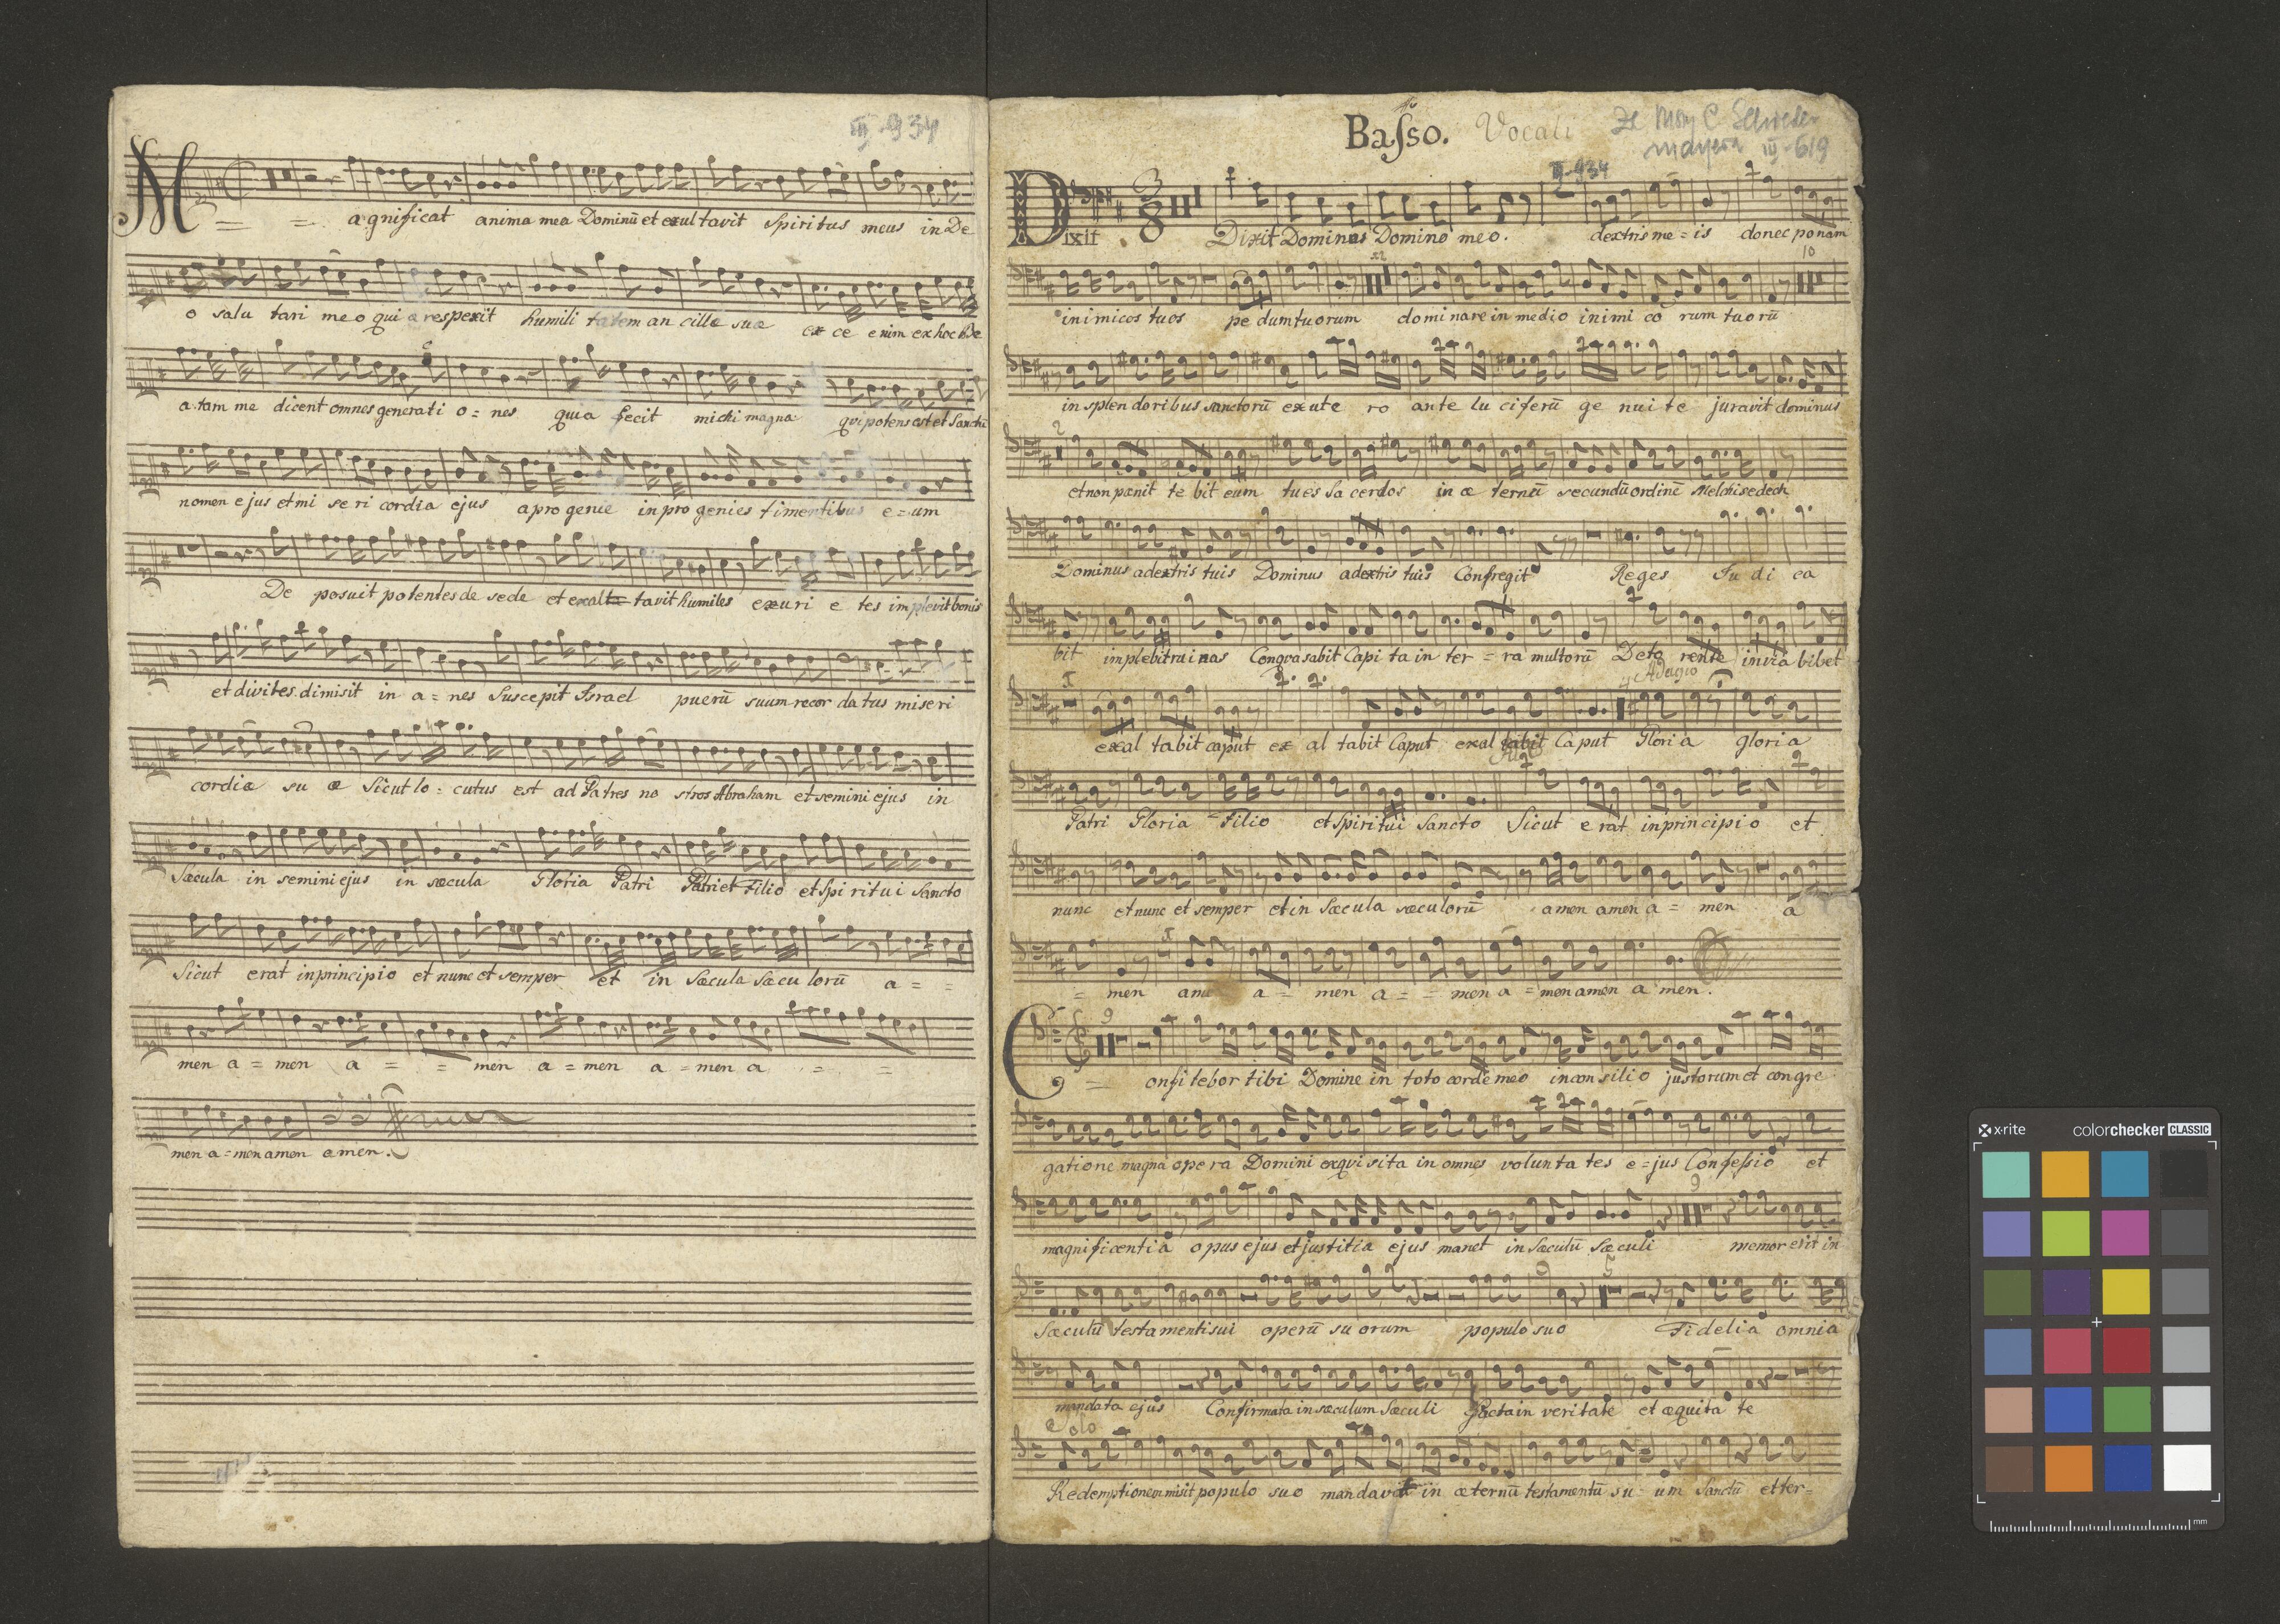 III-934
Magnificat anima mea Dominū et exultavit Spiritus meus in De
o salu tari meo qui a respexit humili tatem an cillæ suæ ex ce enim ex hoc Be
atam me dicent omnes generati o = nes quia fecit michi magna qui potens est et Sanctū
nomen ejus et mi se ri cordia ejus a pro genie in pro genies timentibus e = um
De posuit potentes de sede et exalta tavit humiles exuri e tes implevit bonis
et divites dimisit in a = nes Suscepit Israel puerū suum recor datus miseri
cordiæ su æ Sicut lo = cutus est ad Patres no stros Abraham et semini ejus in
Sæcula in semini ejus in sæcula Gloria Patri Patri et Filio et Spi ritui Sancto
Sicut erat in principio et nunc et semper et in Sæcula Sæcu lorū a = =
men a = men a = = men a = men a = men a = =
men a = men amen amen.
Basso. Vocali
III-619
III-934
Dixit 3/8 Dixit Dominus Domino meo. dextris me = is donec ponam
10
inimicos tuos pe dum tuorum dominare in medio inimi co rum tuorū
in splendoribus sanctorū ex ute ro ante lu ciferū ge nui te juravit dominus
2
et non pænit te bit eum tu es Sa cerdos in æ ternū secundū ordinē Melchisedech
Dominus a dextris tuis Dominus a dextris tuis Confregit Reges Ju di ca
bit implebit ruinas Conquasabit Capi ta in ter = ra multorū De to rente in via bibet
Adagio
exal tabit caput ex al tabit Caput exal tabit Caput Gloria gloria
Patri Gloria Filio et Spiritui Sancto Sicut e rat in principio et
nunc et nunc et semper et in Sæcula sæculorū amen amen a = men a
= men ame a = men a = = men a = men amen a men.
9
Confitebor tibi Domine in toto corde meo in con silio justorum et congre
gatione magna opera Domini exqvi sita in omnes volunta tes e = jus Confessio et
9
magnificentia opus ejus et justitia ejus manet in Sæculū Sæculi memor erit in
Sæculū testamenti sui operū su orum populo suo Fidelia omnia
mandata ejus Confirmata in sæculum Sæculi facta in veritate et æquita te
Solo
Redemptionem misit populo suo mandavit in æternū testamentū su = um Sanctū et ter =
x-rite colorchecker CLASSIC
mm